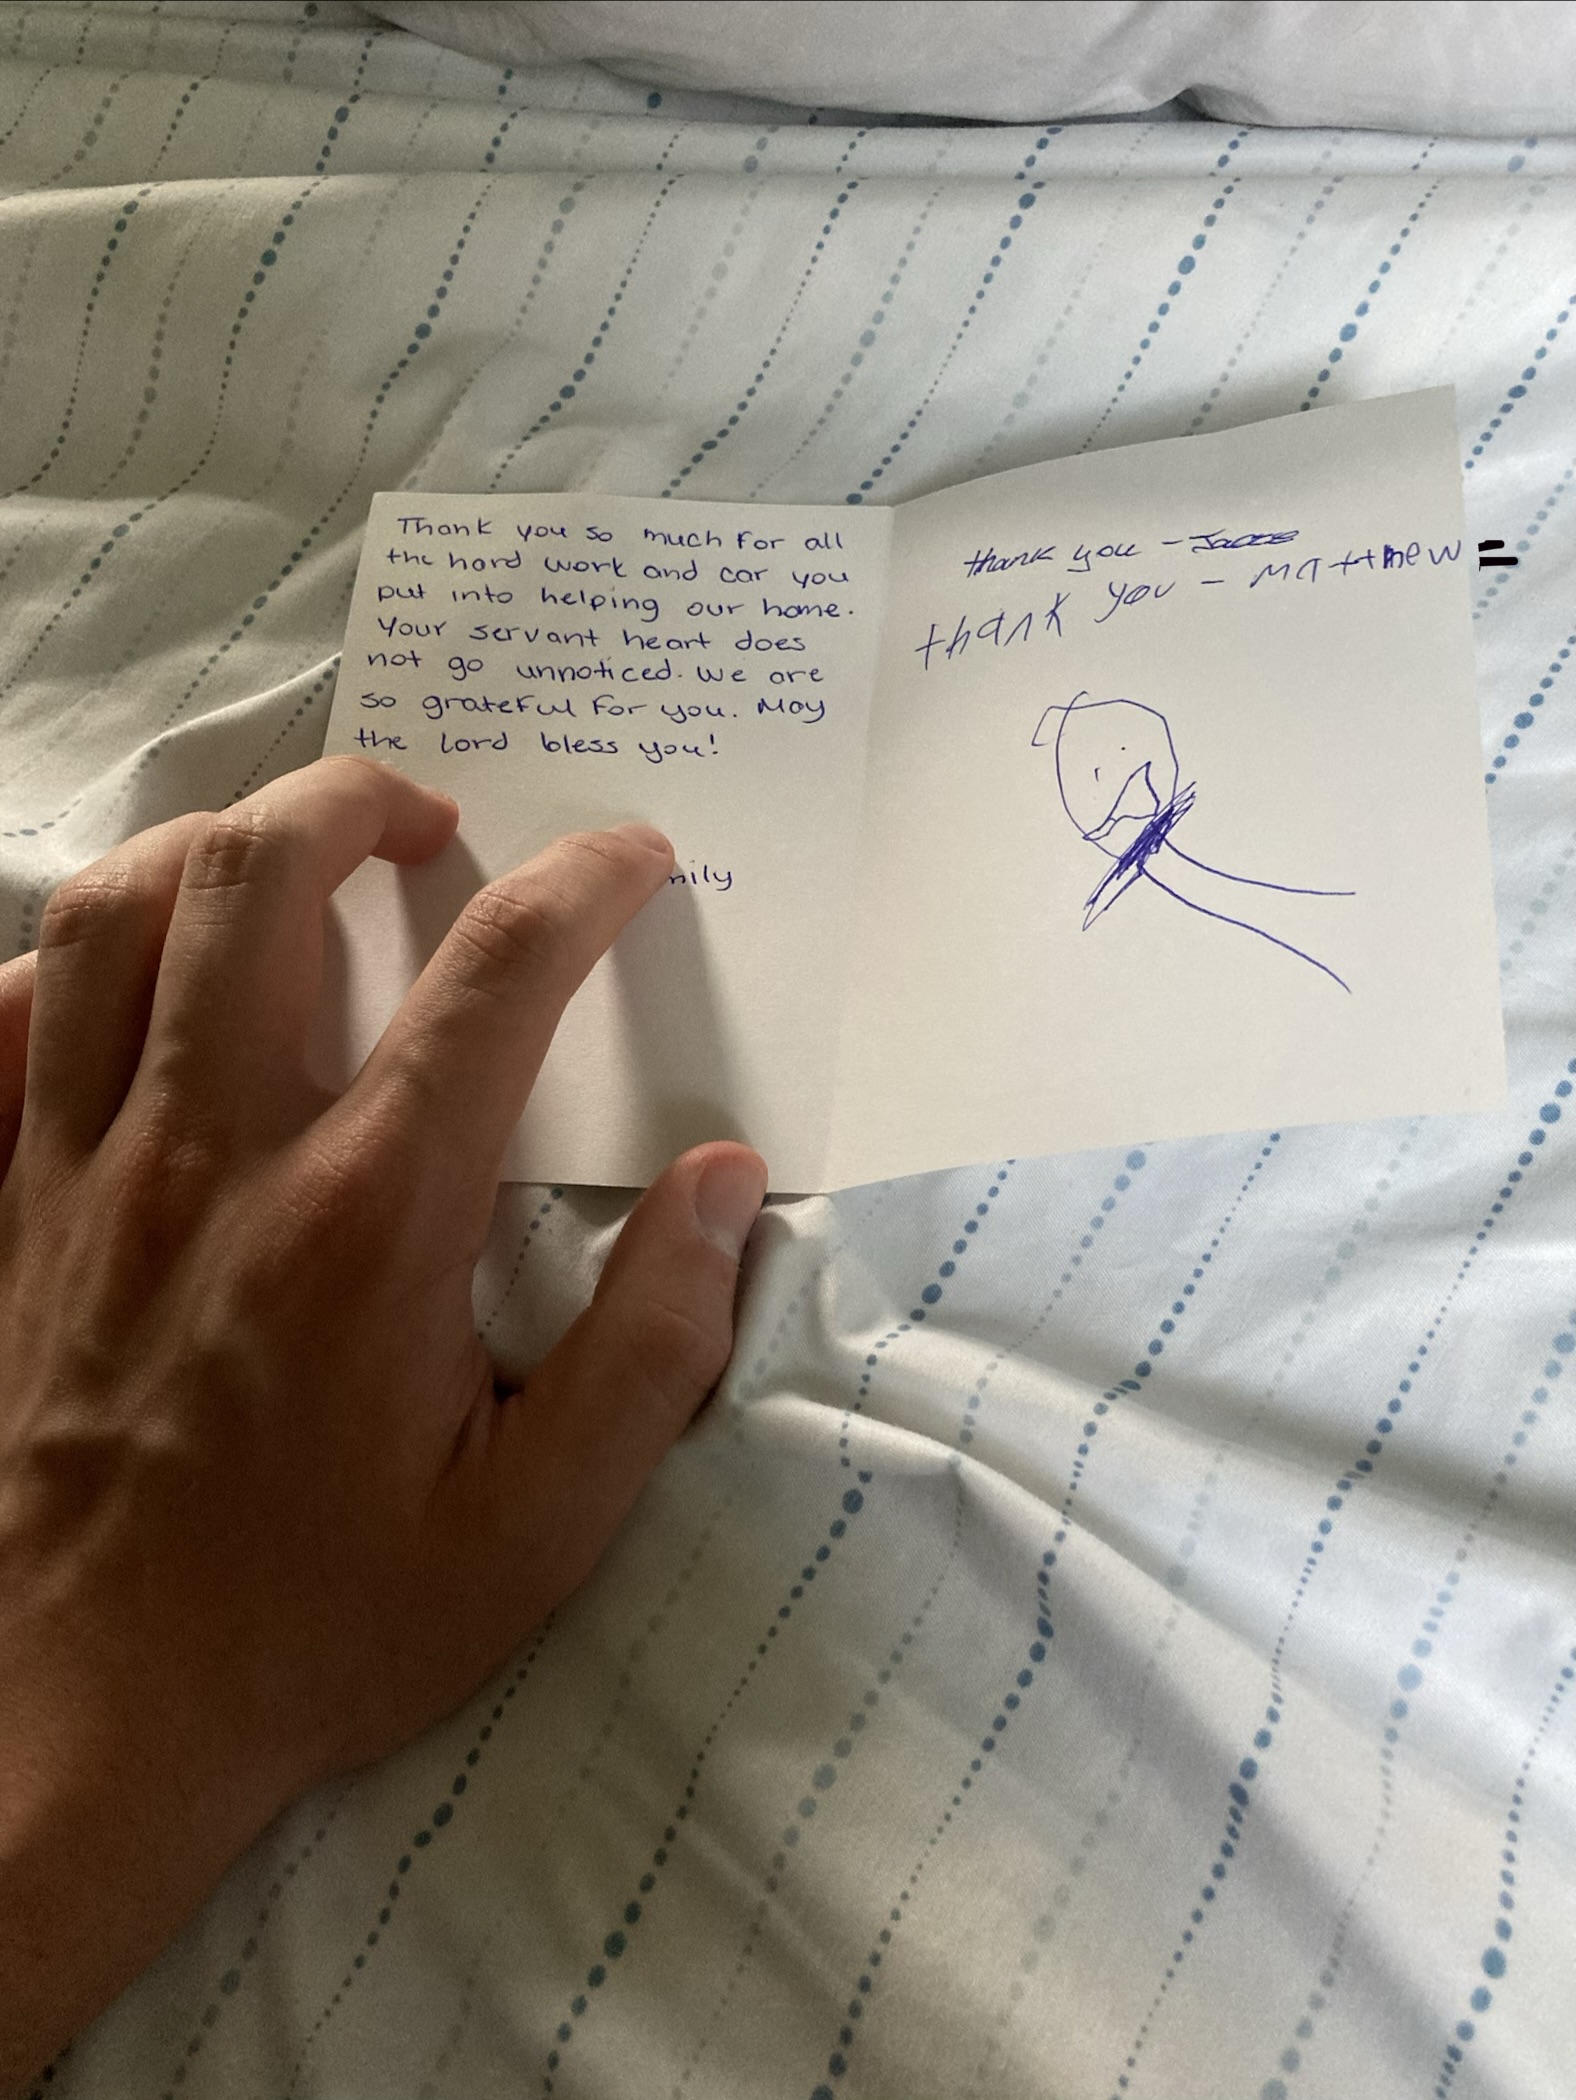 Thank you so much for all
the hard work and car you
put into helping our home.
Your servant heart does
not go unnoticed. We are
so grateful for you. May
the Lord bless you!
mily
thank you -
thank you - Matthew